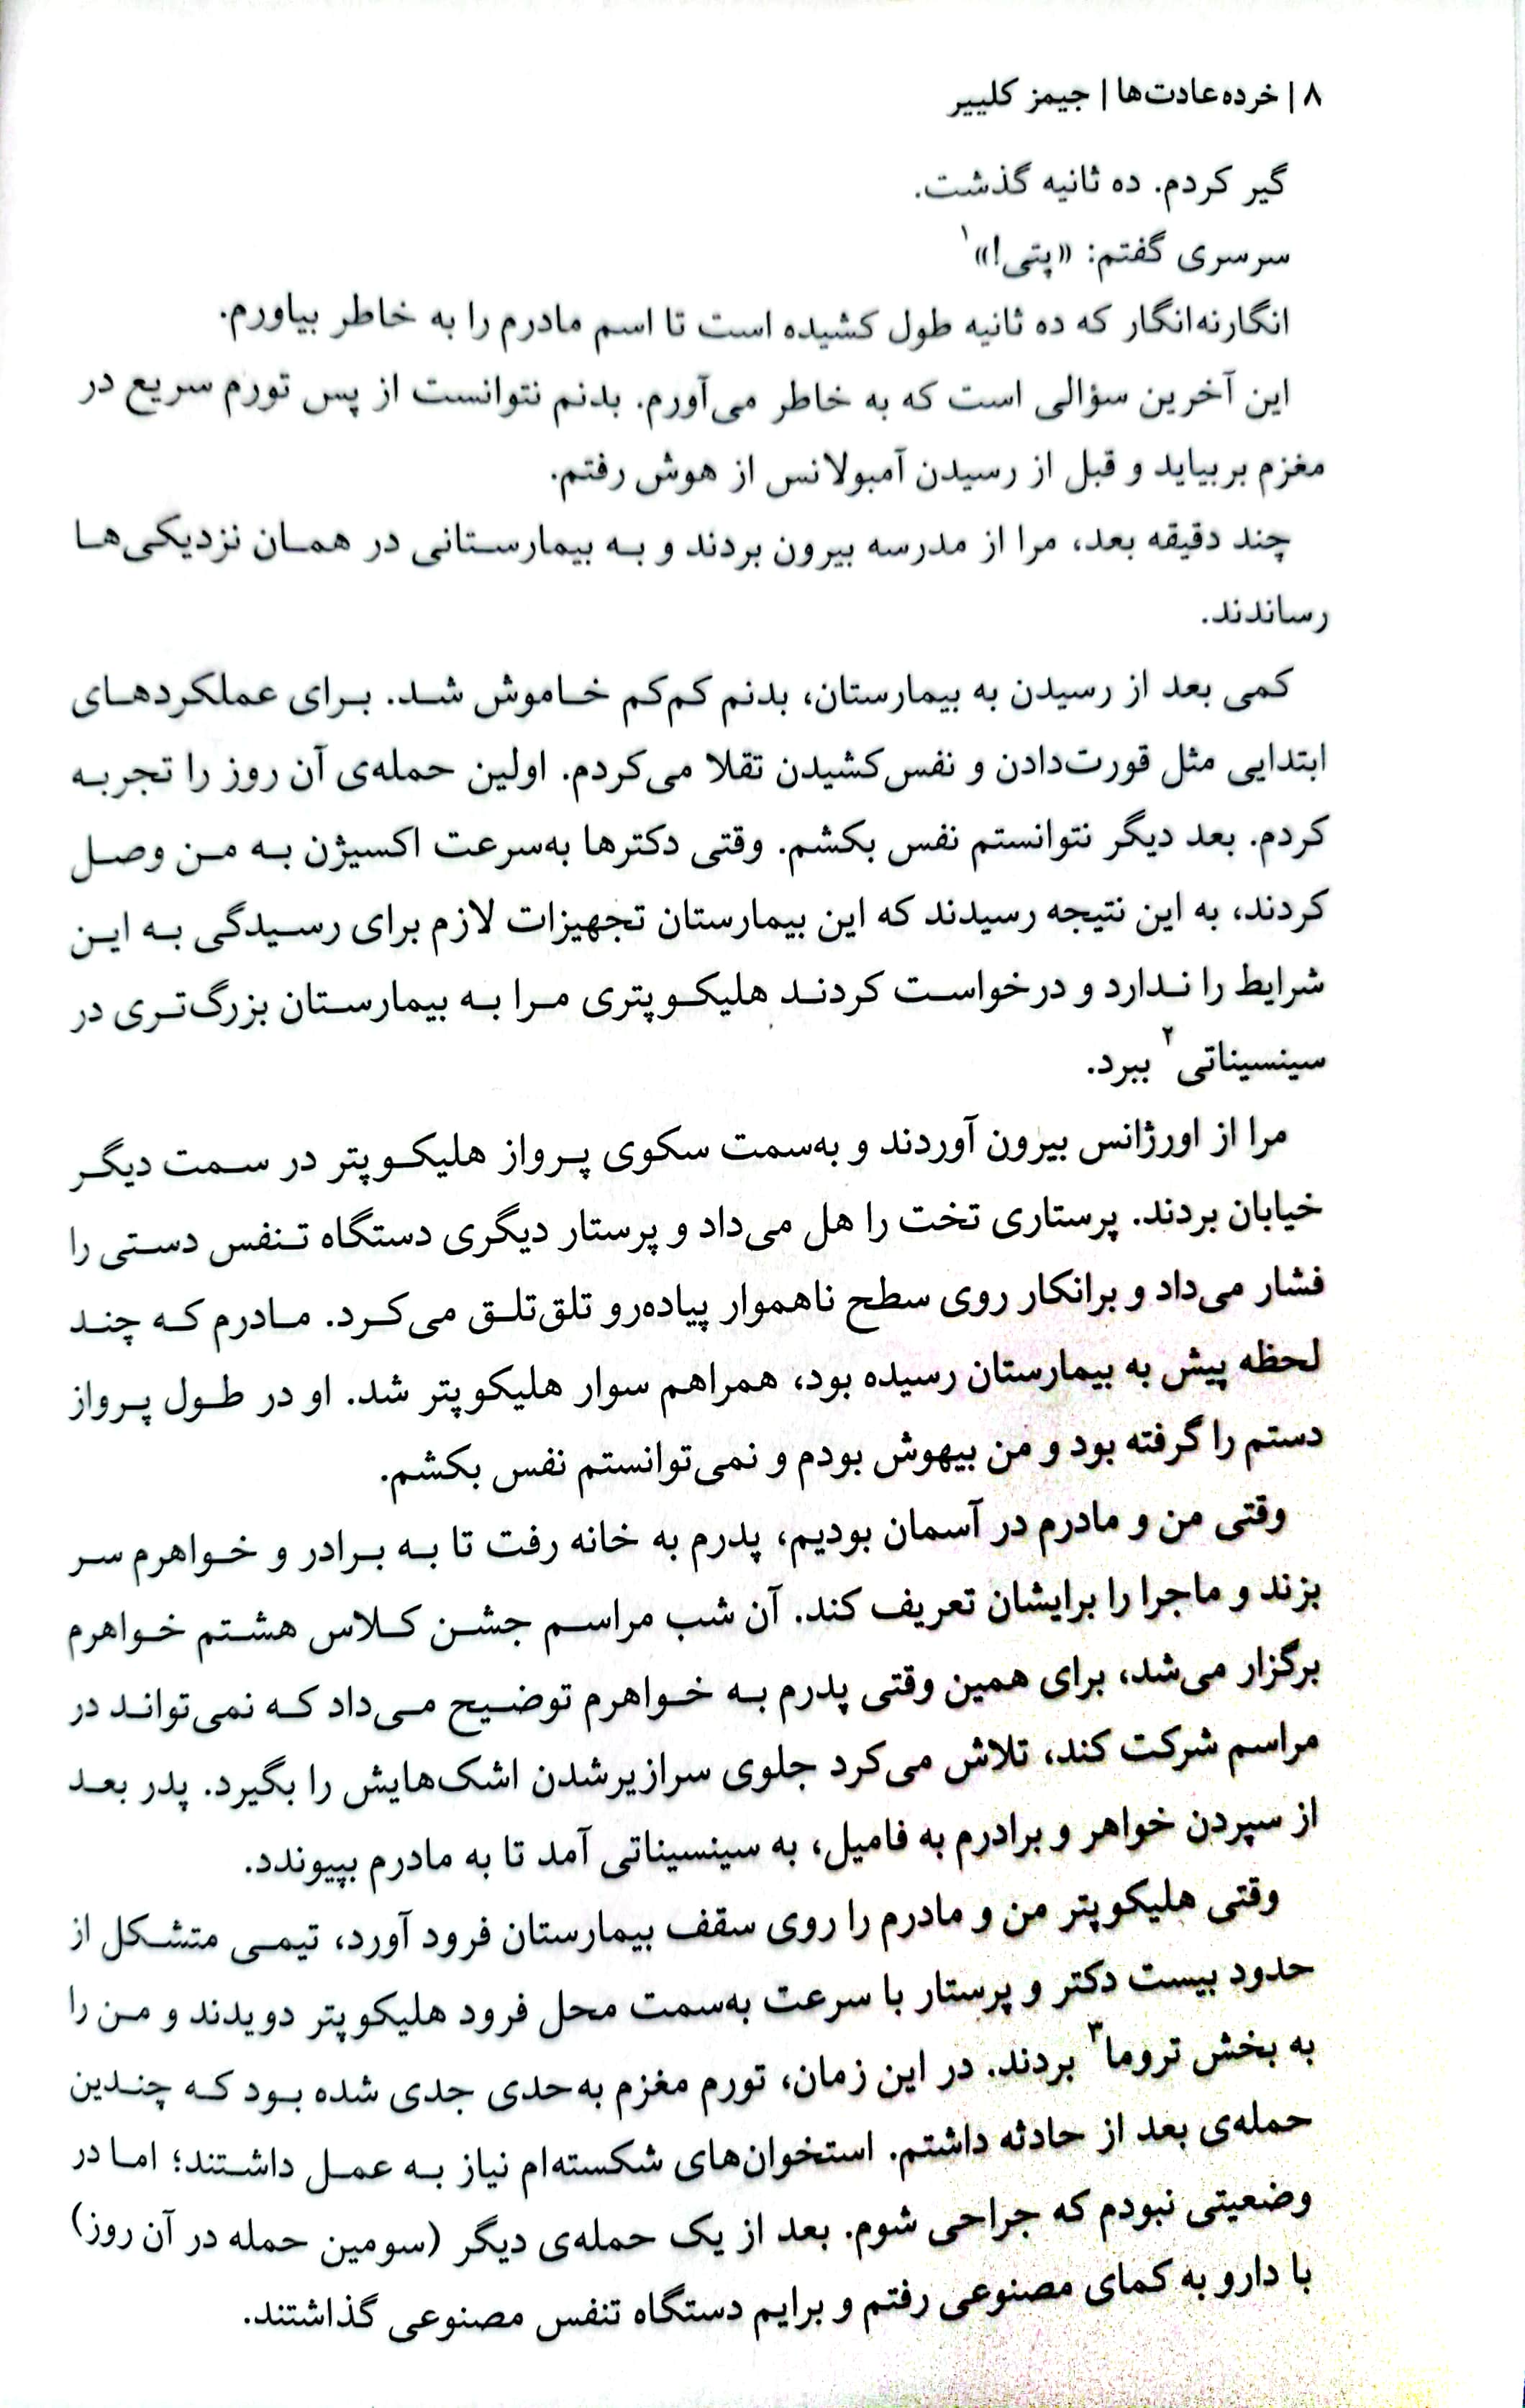 ۸ | خرده‌عادت‌ها | جیمز کلییر
گیر کردم. ده ثانیه گذشت.
سرسری گفتم: «پتی!»۱
انگارنه‌انگار که ده ثانیه طول کشیده است تا اسم مادرم را به خاطر بیاورم.
این آخرین سؤالی است که به خاطر می‌آورم. بدنم نتوانست از پس تورم سریع در
مغزم بربیاید و قبل از رسیدن آمبولانس از هوش رفتم.
چند دقیقه بعد، مرا از مدرسه بیرون بردند و به بیمارستانی در همان نزدیکی‌ها
رساندند.
کمی بعد از رسیدن به بیمارستان، بدنم کم‌کم خاموش شد. برای عملکردهای
ابتدایی مثل قورت‌دادن و نفس‌کشیدن تقلا می‌کردم. اولین حمله‌ی آن روز را تجربه
کردم. بعد دیگر نتوانستم نفس بکشم. وقتی دکترها به‌سرعت اکسیژن به من وصل
کردند، به این نتیجه رسیدند که این بیمارستان تجهیزات لازم برای رسیدگی به این
شرایط را ندارد و درخواست کردند هلیکوپتری مرا به بیمارستان بزرگ‌تری در
سینسیناتی۲ ببرد.
مرا از اورژانس بیرون آوردند و به‌سمت سکوی پرواز هلیکوپتر در سمت دیگر
خیابان بردند. پرستاری تخت را هل می‌داد و پرستار دیگری دستگاه تنفس دستی را
فشار می‌داد و برانکار روی سطح ناهموار پیاده‌رو تلق‌تلق می‌کرد. مادرم که چند
لحظه پیش به بیمارستان رسیده بود، همراهم سوار هلیکوپتر شد. او در طول پرواز
دستم را گرفته بود و من بیهوش بودم و نمی‌توانستم نفس بکشم.
وقتی من و مادرم در آسمان بودیم، پدرم به خانه رفت تا به برادر و خواهرم سر
بزند و ماجرا را برایشان تعریف کند. آن شب مراسم جشن کلاس هشتم خواهرم
برگزار می‌شد، برای همین وقتی پدرم به خواهرم توضیح می‌داد که نمی‌تواند در
مراسم شرکت کند، تلاش می‌کرد جلوی سرازیرشدن اشک‌هایش را بگیرد. پدر بعد
از سپردن خواهر و برادرم به فامیل، به سینسیناتی آمد تا به مادرم بپیوندد.
وقتی هلیکوپتر من و مادرم را روی سقف بیمارستان فرود آورد، تیمی متشکل از
حدود بیست دکتر و پرستار با سرعت به‌سمت محل فرود هلیکوپتر دویدند و من را
به بخش تروما۳ بردند. در این زمان، تورم مغزم به‌حدی جدی شده بود که چندین
حمله‌ی بعد از حادثه داشتم. استخوان‌های شکسته‌ام نیاز به عمل داشتند؛ اما در
وضعیتی نبودم که جراحی شوم. بعد از یک حمله‌ی دیگر (سومین حمله در آن روز)
با دارو به کمای مصنوعی رفتم و برایم دستگاه تنفس مصنوعی گذاشتند.